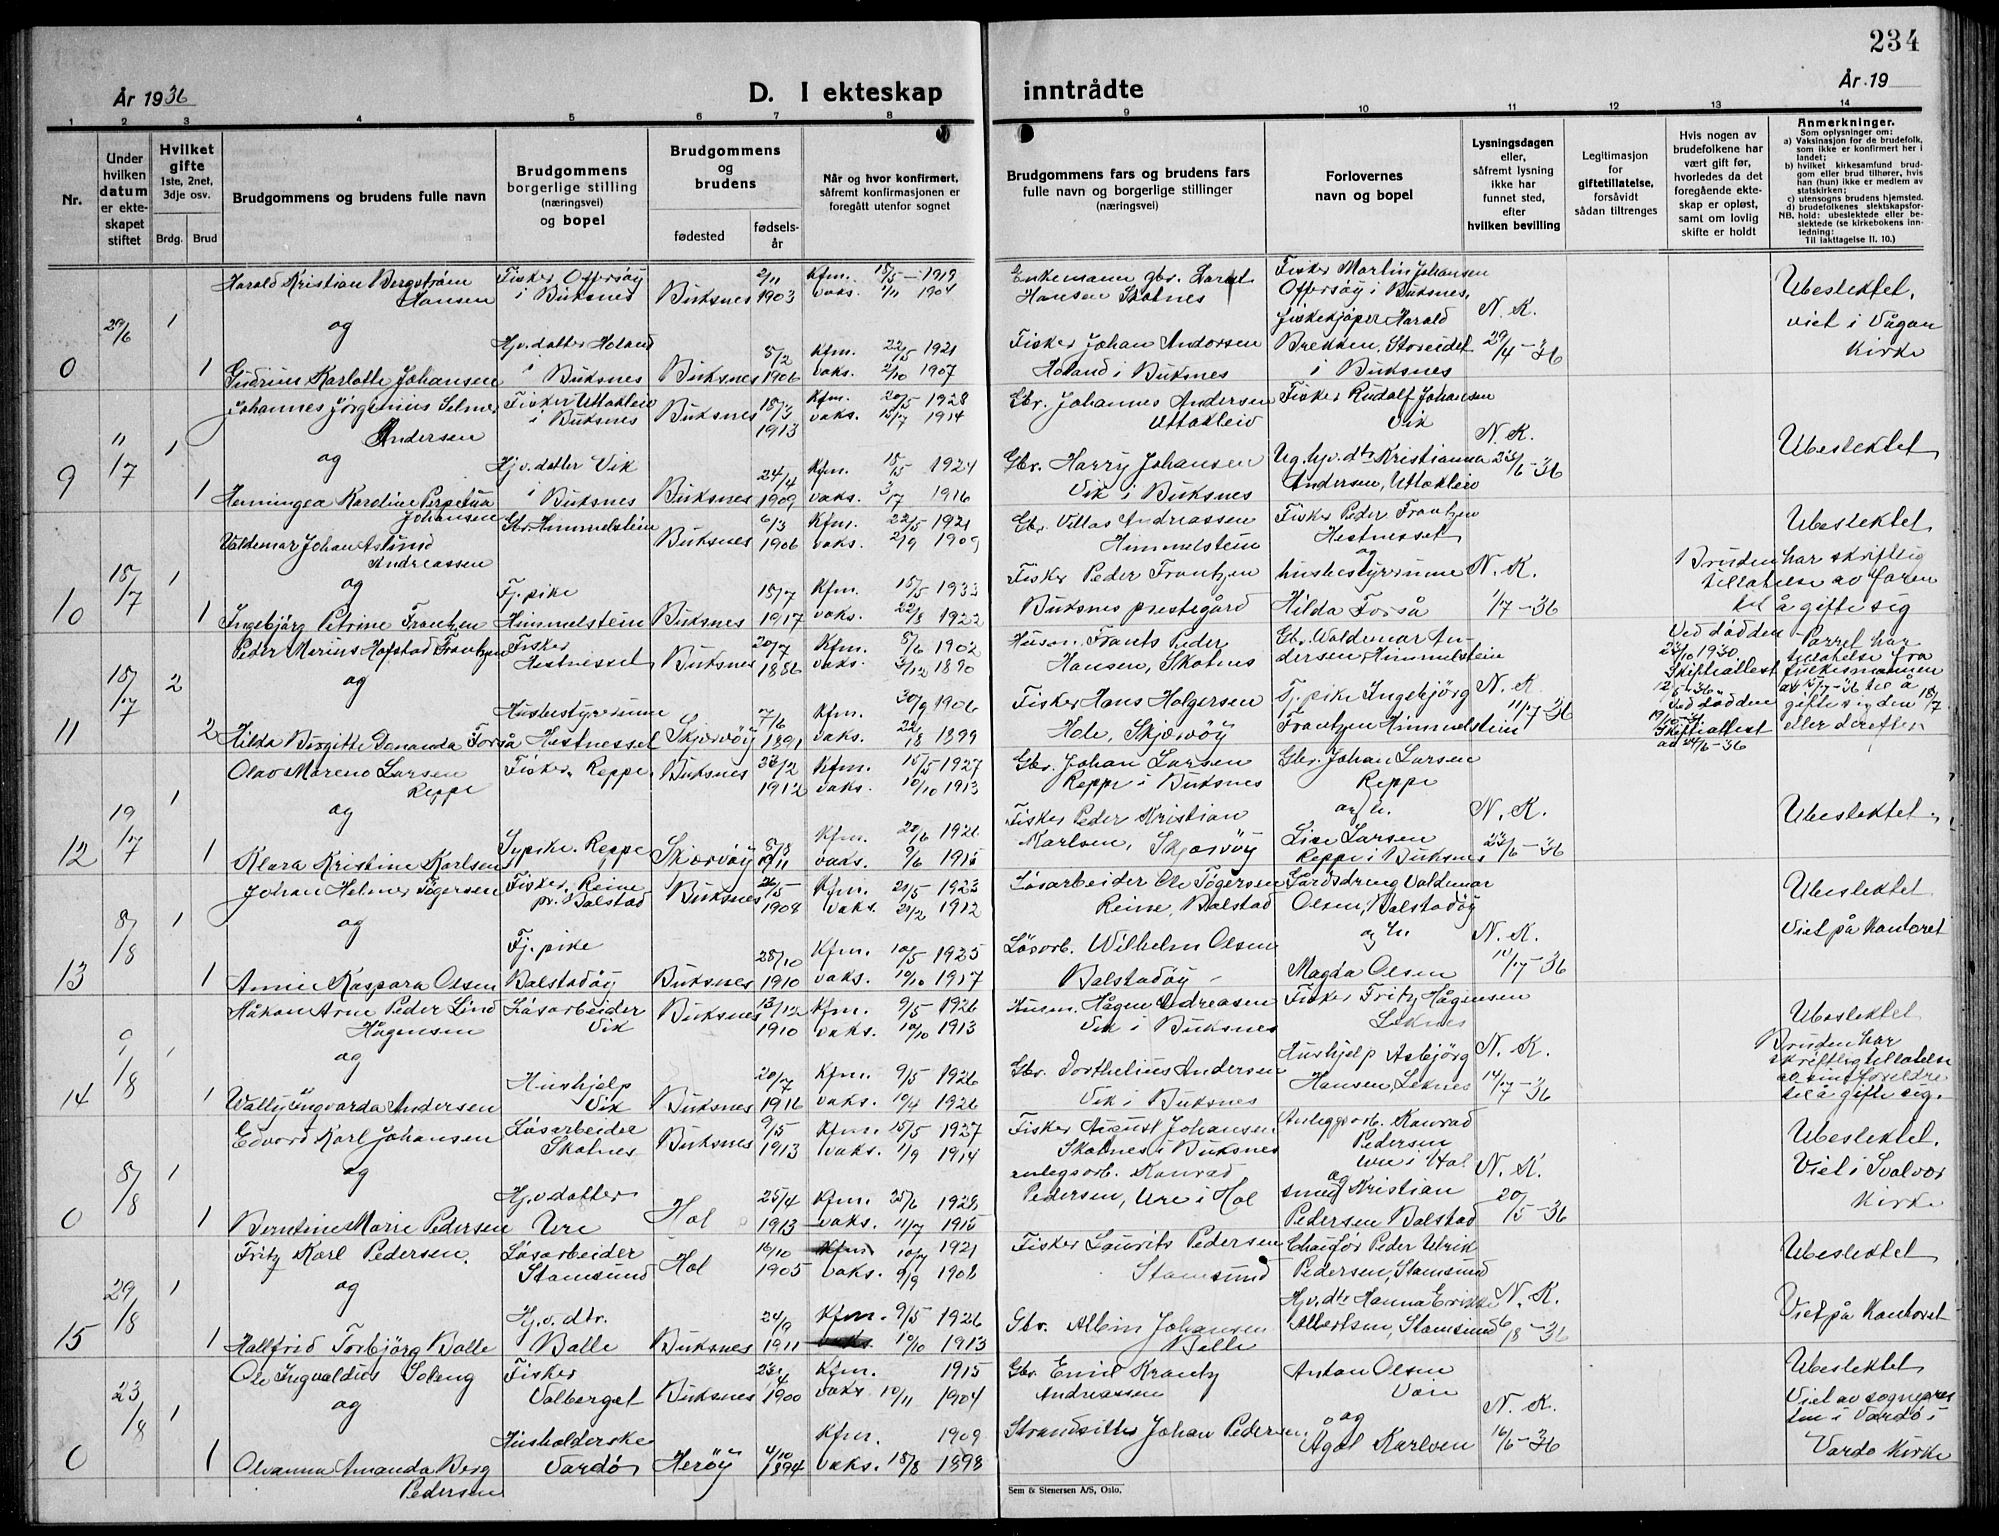 234
År 1936
D. I ekteskap inntrådte
År 19
1 2 3 4 5 6 7 8 9 10 11 12 13 14
Nr.
Under hvilken datum er ekteskapet stiftet
Hvilket gifte 1ste, 2net, 3dje osv.
Brdg. Brud
Brudgommens og brudens fulle navn
Brudgommens borgerlige stilling (næringsvei) og bopel
Brudgommens og brudens
fødested
fødsels-år
Når og hvor konfirmert, såfremt konfirmasjonen er foregått utenfor sognet
Brudgommens fars og brudens fars fulle navn og borgerlige stillinger (næringsvei)
Forlovernes navn og bopel
Lysningsdagen eller, såfremt lysning ikke har funnet sted, efter hvilken bevilling
Legitimasjon for giftetillatelse, forsåvidt sådan tiltrenges
Hvis nogen av brudefolkene har vært gift før, hvorledes da det foregående ekteskap er opløst, samt om lovlig skifte er holdt
Anmerkninger.
Som oplysninger om:
a) Vaksinasjon for de brudefolk, som ikke er konfirmert her i landet;
b) hvilket kirkesamfund brudgom eller brud tilhører, hvis han (hun) ikke er medlem av statskirken;
c) utensogns brudens hjemsted.
d) brudefolkenes slektskapsforhold: ubeslektede eller beslektede (se kirkebokens innledning:
NB. Til iakttagelse II. 10.)
0 29/6 1 Harald Kristian Bergstrøm Hansen Fisker, Offersøy i Buksnes Buksnes 2/11 1903 Kfm. 18/5 - 1919 vaks. 1/11 1904 Enkemann gbr. Hansen Skotnes Fisker Martin Johansen Offersøy i Buksnes, N. K. Ubeslektet.
og
fiskekjøper Harald Brekken, Storeidet i Buksnes 29/4 - 36 viet i Vågan Kirke
1 Gudrun Karlotte Johansen Hj.v. datter Holand i Buksnes Buksnes 8/2 1906 Kfm. 22/5 1921 vaks. 2/10 1907 Fisker Johan Andorsen Holand i Buksnes
9 11/7 1 Johannes Jørgenius Selmer Andersen Fisker Uttakleiv i Buksnes Buksnes 18/3 1913 Kfm. 20/5 1928 vaks. 15/7 1914 Gbr. Johannes Andersen Uttakleiv Fisker Rudolf Johansen Vik N. K. Ubeslektet
og
1 Henningea Karoline Perpetua Johansen Hj.v. datter Vik i Buksnes Buksnes 24/4 1909 Kfm. 18/5 1924 vaks. 3/7 1916 Gbr. Harry Johansen Vik i Buksnes Ug. hjv. dtr Kristianna Andersen, Uttakleiv 23/6 - 36
10 18/7 1 Valdemar Johan Aslund Andreassen Gbr. Himmelstein Buksnes 6/3 1906 Kfm. 22/5 1921 vaks. 2/9 1909 Gbr. Villas Andreassen Himmelstein Fisker Peder Frantzen Hestnesset Ubeslektet
og
1 Ingebjørg Petrine Frantzen Fj. pike Himmelstein Buksnes 18/7 1917 Kfm. 18/5 1933 vaks. 22/8 1922 Fisker Peder Frantzen Buksnes prestegård og husbestyrerinne Hilda Forså N. K. 1/7 - 36 Bruden har skriftlig tillatelse av faren til å gifte sig
11 18/7 2 Peder Marius Hofstad Frantzen Fisker Hestnesset Buksnes 20/7 1886 Kfm. 8/6 1902 vaks. 31/12 1890 Husm. Frants Peder Hansen, Skotnes Gbr. Waldemar Andersen, Himmelstein N. K. Ved døden 23/10 1930 Skifteattest 12/5 - 36 Parret har tillatelse fra fylkesmannen av 15/7 - 36 til å
og
2 Hilda Birgitte Donanda Forså Husbestyrerinne Hestnesset Skjærvøy 7/6 1891 Kfm. 30/9 1906 vaks. 22/8 1899 Fisker Hans Holgersen Hode, Skjærvøy Fj. pike Ingebjørg Frantzen Himmelstein 11/7 - 36 Ved døden Skifteattest ad 24/6 - 36 gifte sig den 18/7 eller derefter
12 19/7 1 Olav Moreno Larsen Reppe Fisker, Reppe. Buksnes 23/2 1912 Kfm. 15/5 1927 vaks. 10/10 1913 Gbr. Johan Larsen Reppe i Buksnes Gbr. Johan Larsen Reppe N. K. Ubeslektet
og
1 Klara Kristine Karlsen Sypike, Reppe Skjærvøy 8/8 1911 Kfm. 20/6 1926 vaks. 9/6 1915 Fisker Peder Kristian Karlsen, Skjærvøy og h. Lise Larsen Reppe i Buksnes 23/6 - 36
13 8/8 1 Johan Helmer Tøgersen Fisker, Reine pr. Balstad Buksnes 26/5 1908 Kfm. 21/5 1923 vaks. 21/2 1912 Løsarbeider Ole Tøgersen Reine, Balstad Gårdsdreng Valdemar Olsen, Balstadøy Ubeslektet
og
1 Annie Kaspara Olsen Fj. pike Balstadøy Buksnes 28/10 1910 Kfm. 10/5 1925 vaks. 10/10 1917 Løsarb. Wilhelm Olsen Balstadøy og h. Magda Olsen N. K. 11/7 - 36 Viet på kontoret
14 9/8 1 Håkon Arne Peder Lind Hågensen Løsarbeider Vik Buksnes 13/12 1910 Kfm. 9/5 1926 vaks. 10/10 1913 Husm. Hågen Andreasen Vik i Buksnes Fisker Fritz Hågensen Leknes Ubeslektet
og
1 Wally Ingvarda Andersen Hushjelp Vik Buksnes 20/7 1916 Kfm. 9/5 1926 vaks. 10/4 1926 Gbr. Dorthelius Andersen Vik i Buksnes Hushjelp Asbjørg Hansen, Leknes N. K. 14/7 - 36 Bruden har skriftlig tillatelse av sine foreldre til å gifte sig.
0 8/8 1 Edvard Karl Johansen Løsarbeider Skotnes Buksnes 9/5 1913 Kfm. 15/5 1927 vaks. 1/9 1914 Fisker August Johansen Skotnes i Buksnes Anleggsarb. Konrad Pedersen Ure i Hol Ubeslektet.
og
1 Berntine Marie Pedersen Hj.v. datter Ure Hol 25/4 1913 Kfm. 25/6 1928 vaks. 11/7 1915 anlegsarb. Konrad Pedersen, Ure i Hol og smed Kristian Pedersen Balstad N. K. 20/5 - 36 Viet i Svolvær Kirke
15 29/8 1 Fritz Karl Pedersen. Løsarbeider Stamsund Hol 10/10 1905 Kfm. 10/7 1921 vaks. 9/9 1908 Fisker Laurits Pedersen Stamsund Chauffør Peder Ulrik Pedersen, Stamsund Ubeslektet
og
1 Hallfrid Torbjørg Bolle Hj.v. dtr. Bolle Buksnes 24/9 1911 Kfm. 9/5 1926 vaks. 10/10 1913 Gbr. Albin Johansen Bolle Hjv. dtr Hanna Erikke Albertsen, Stamsund N. K. 6/8 - 36 Viet på kontoret
0 23/8 1 Ole Ingvaldus Soleng Fisker Valberget Buksnes 23/4 1900 Kfm. 1915 vaks. 10/11 1904 Gbr. Emil Krantz Andreassen Anton Olsen Ubeslektet
og
1 Olvanna Amanda Berg Pedersen Husholderske Vardø Herøy 4/10 1894 Kfm. 1909 vaks. 18/8 1898 Strandsitter Johan Pedersen og Ågot Karlsen N. K. 16/6 - 36 Viet av sognepresten i Vardø i Vardø Kirke
Sem & Stenersen A/S, Oslo.